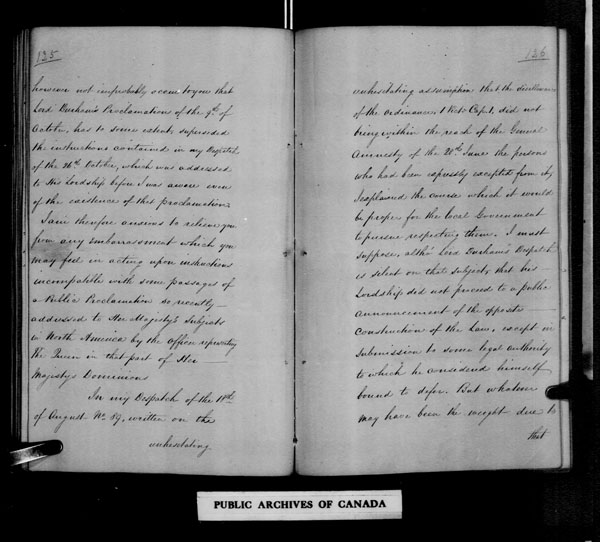 125
however not improbably occur to you that
Lord Durham's Proclamation of the 9th of
October, has to some extent, superseded
the instructions contained in my Despatch
of the 26th October, which was addressed
to His Lordship before I was aware even
of the existence of this proclamation.
I am therefore anxious to relieve you
from any embarrassment which you
may feel in acting upon instructions
incompatible with some passages of
a Public Proclamation so recently
addressed to Her Majesty's Subjects
in North America by the officer representing
The Queen in that part of Her
Majesty's Dominions
In my Despatch of the 18th
of August No 89, written on the
unhesitating
126
unhesitating assumption that the disallowance
of the Ordinance, 1 Vict. Cap. 1, did not
bring within the reach of the General
Amnesty of the 28th June the persons
who had been expressly excepted from it,
I explained the course which it would
be proper for the local Government
to pursue respecting them. I must
suppose, altho' Lord Durham's Despatch
is silent on that subject, that his
Lordship did not proceed to a public
announcement of the opposite
construction of the Law, except in
submission to some legal authority
to which he considered himself
bound to defer. But whatever
may have been the weight due to
that
PUBLIC ARCHIVES OF CANADA